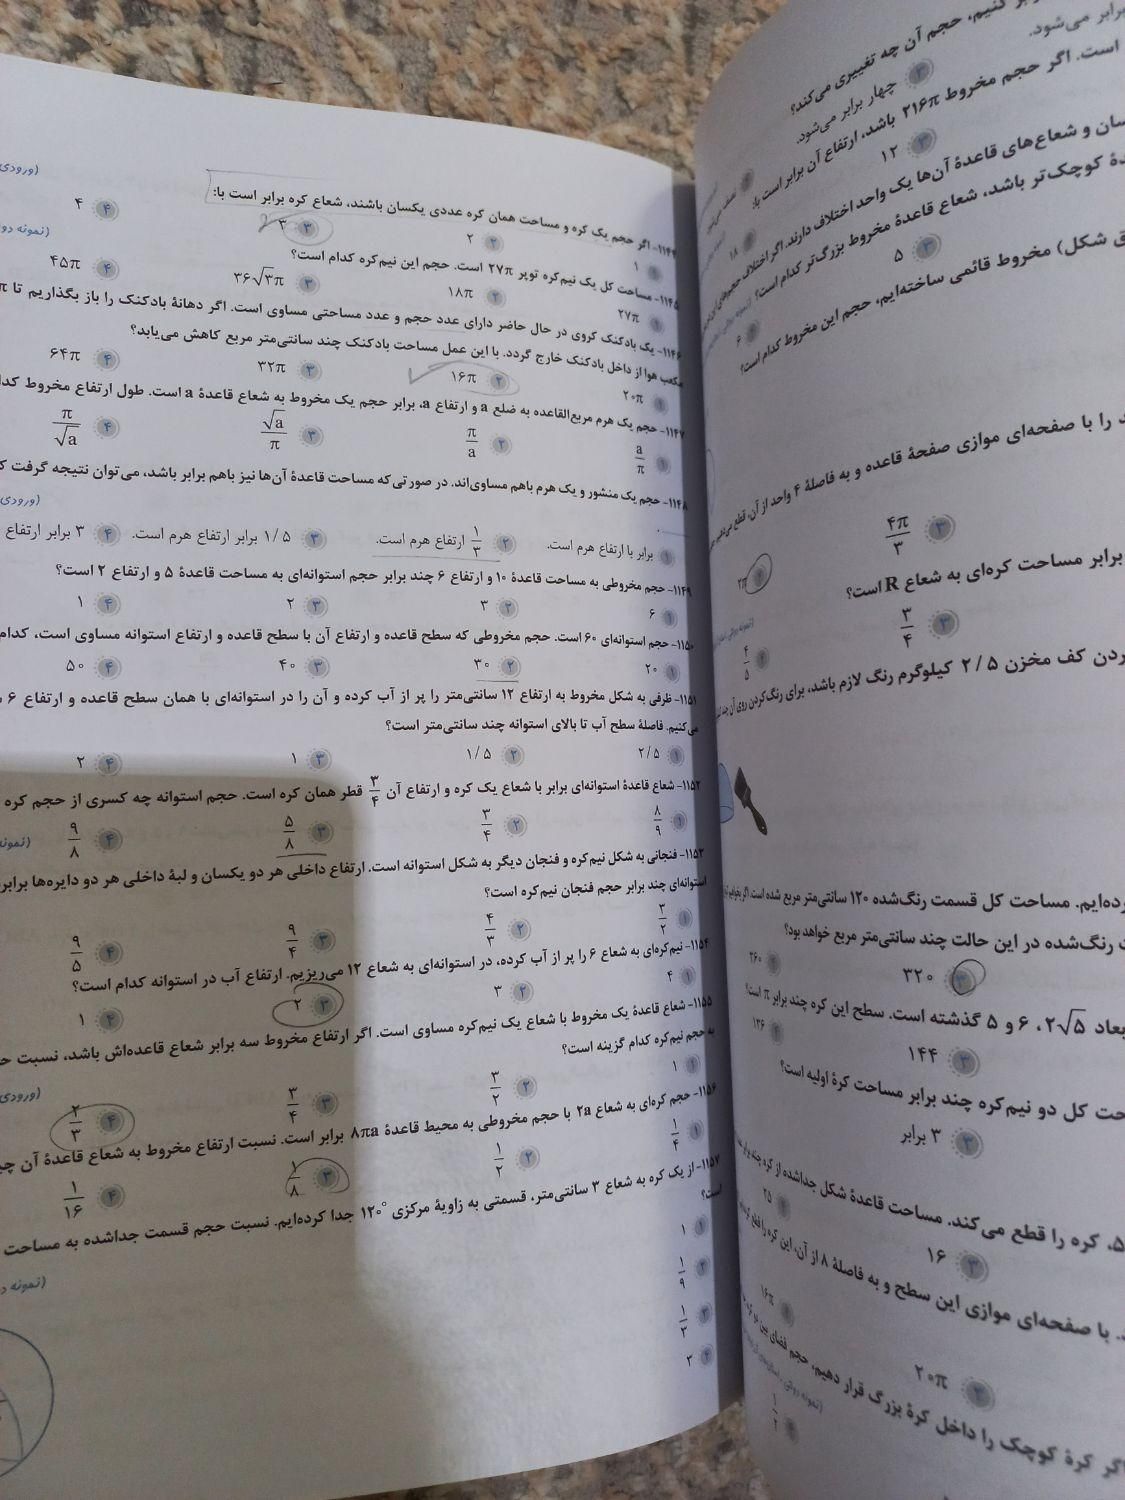 ۱۱۴۴- اگر حجم یک کره و مساحت همان کره عددی یکسان باشند، شعاع کره برابر است با: (ورودی
۱) ۱ ۲) ۲ ۳) ۳ ۴) ۴
۱۱۴۵- مساحت کل یک نیم‌کره توپر ۲۷π است. حجم این نیم‌کره کدام است؟ (نمونه دو
۱) ۲۷π ۲) ۱۸π ۳) ۳۶√۳π ۴) ۴۵π
۱۱۴۶- یک بادکنک کروی در حال حاضر دارای عدد حجم و عدد مساحتی مساوی است. اگر دهانهٔ بادکنک را باز بگذاریم تا
مکعب هوا از داخل بادکنک خارج گردد. با این عمل مساحت بادکنک چند سانتی‌متر مربع کاهش می‌یابد؟
۱) ۲۰π ۲) ۱۶π ۳) ۳۲π ۴) ۶۴π
۱۱۴۷- حجم یک هرم مربع‌القاعده به ضلع a و ارتفاع a، برابر حجم یک مخروط به شعاع قاعدهٔ a است. طول ارتفاع مخروط
۱) a/π ۲) π/a ۳) √a/π ۴) π/√a
۱۱۴۸- حجم یک منشور و یک هرم باهم مساوی‌اند. در صورتی‌که مساحت قاعدهٔ آن‌ها نیز باهم برابر باشد، می‌توان نتیجه گرفت
(ورودی
۱) برابر با ارتفاع هرم است. ۲) ۱/۳ ارتفاع هرم است. ۳) ۱/۵ برابر ارتفاع هرم است. ۴) ۳ برابر ارتفاع
۱۱۴۹- حجم مخروطی به مساحت قاعدهٔ ۱۰ و ارتفاع ۶ چند برابر حجم استوانه‌ای به مساحت قاعدهٔ ۵ و ارتفاع ۲ است؟
۱) ۶ ۲) ۳ ۳) ۲ ۴) ۱
۱۱۵۰- حجم استوانه‌ای ۶۰ است. حجم مخروطی که سطح قاعده و ارتفاع آن با سطح قاعده و ارتفاع استوانه مساوی است، کدام
۱) ۲۰ ۲) ۳۰ ۳) ۴۰ ۴) ۵۰
۱۱۵۱- ظرفی به شکل مخروط به ارتفاع ۱۲ سانتی‌متر را پر از آب کرده و آن را در استوانه‌ای با همان سطح قاعده و ارتفاع ۶
می‌کنیم. فاصلهٔ سطح آب تا بالای استوانه چند سانتی‌متر است؟
۱) ۲/۵ ۲) ۱/۵ ۳) ۱ ۴) ۲
۱۱۵۲- شعاع قاعدهٔ استوانه‌ای برابر با شعاع یک کره و ارتفاع آن ۳/۴ قطر همان کره است. حجم استوانه چه کسری از حجم کره
۱) ۸/۹ ۲) ۳/۴ ۳) ۵/۸ ۴) ۹/۸
۱۱۵۳- فنجانی به شکل نیم‌کره و فنجان دیگر به شکل استوانه است. ارتفاع داخلی هر دو یکسان و لبهٔ داخلی هر دو دایره‌ها برابرند
استوانه‌ای چند برابر حجم فنجان نیم‌کره است؟ (نمونه
۱) ۳/۲ ۲) ۴/۳ ۳) ۹/۴ ۴) ۹/۵
۱۱۵۴- نیم‌کره‌ای به شعاع ۶ را پر از آب کرده، در استوانه‌ای به شعاع ۱۲ می‌ریزیم. ارتفاع آب در استوانه کدام است؟
۱) ۴ ۲) ۳ ۳) ۲ ۴) ۱
۱۱۵۵- شعاع قاعدهٔ یک مخروط با شعاع یک نیم‌کره مساوی است. اگر ارتفاع مخروط سه برابر شعاع قاعده‌اش باشد، نسبت
به حجم نیم‌کره کدام گزینه است؟ (ورودی
۱) ۱ ۲) ۳/۲ ۳) ۳/۴ ۴) ۲/۳
۱۱۵۶- حجم کره‌ای به شعاع ۲a با حجم مخروطی به محیط قاعدهٔ ۸πa برابر است. نسبت ارتفاع مخروط به شعاع قاعدهٔ آن
۱) ۱/۴ ۲) ۱/۲ ۳) ۱/۸ ۴) ۱/۱۶
۱۱۵۷- از یک کره به شعاع ۳ سانتی‌متر، قسمتی به زاویهٔ مرکزی ۱۲۰° جدا کرده‌ایم. نسبت حجم قسمت جداشده به مساحت
است؟ (نمونه
۱) ۱
۲) ۱/۹
۳) ۱/۳
۴) ۳
کنیم، حجم آن چه تغییری می‌کند؟
برابر می‌شود. ۳) چهار برابر می‌شود.
است. اگر حجم مخروط ۲۱۶π باشد، ارتفاع آن برابر است با:
۳) ۱۲ ۱۸
سان و شعاع‌های قاعدهٔ آن‌ها یک واحد اختلاف دارند. اگر اختلاف حجم‌های
کوچک‌تر باشد، شعاع قاعدهٔ مخروط بزرگ‌تر کدام است؟
۳) ۵ ۴) ۶
ق شکل) مخروط قائمی ساخته‌ایم، حجم این مخروط کدام است؟
را با صفحه‌ای موازی صفحهٔ قاعده و به فاصلهٔ ۴ واحد از آن، قطع
۳) ۴π/۳ ۴) ۲π
برابر مساحت کره‌ای به شعاع R است؟
۳) ۳/۴ ۴) ۴/۵
ردن کف مخزن ۲/۵ کیلوگرم رنگ لازم باشد، برای رنگ‌کردن روی آن
رده‌ایم. مساحت کل قسمت رنگ‌شده ۱۲۰ سانتی‌متر مربع شده است.
ت رنگ‌شده در این حالت چند سانتی‌متر مربع خواهد بود؟
۳) ۳۲۰ ۴) ۲۶۰
ابعاد ۲√۵، ۶ و ۵ گذشته است. سطح این کره چند برابر π است؟
۳) ۱۴۴ ۴) ۱۳۶
حت کل دو نیم‌کره چند برابر مساحت کرهٔ اولیه است؟
۳) ۳ برابر
۵، کره را قطع می‌کند. مساحت قاعدهٔ شکل جداشده از کره چند برابر
۳) ۱۶ ۴) ۲۵
با صفحه‌ای موازی این سطح و به فاصلهٔ ۸ از آن، این کره را قطع
۳) ۲۰π ۴) ۱۶π
گر کرهٔ کوچک را داخل کرهٔ بزرگ قرار دهیم، حجم فضای بین دو کره
۱/۲